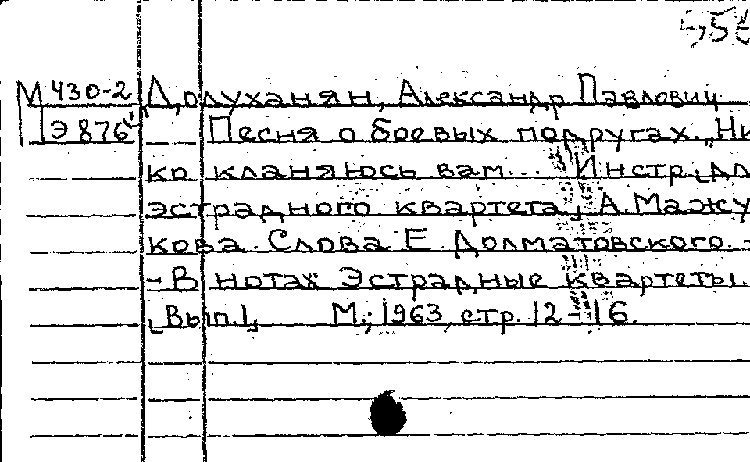 М 430-2 Долуханян, Александр Павлович
Э 876 Песня о боевых подругах. „Ни
ко кланяюсь вам... Инстр. [дл
эстрадного квартета] А. Мажу
кова. Слова Е. Долматовского. -
- В нотах Эстрадные квартеты.
[Вып. 1] М., 1963, стр. 12-16.